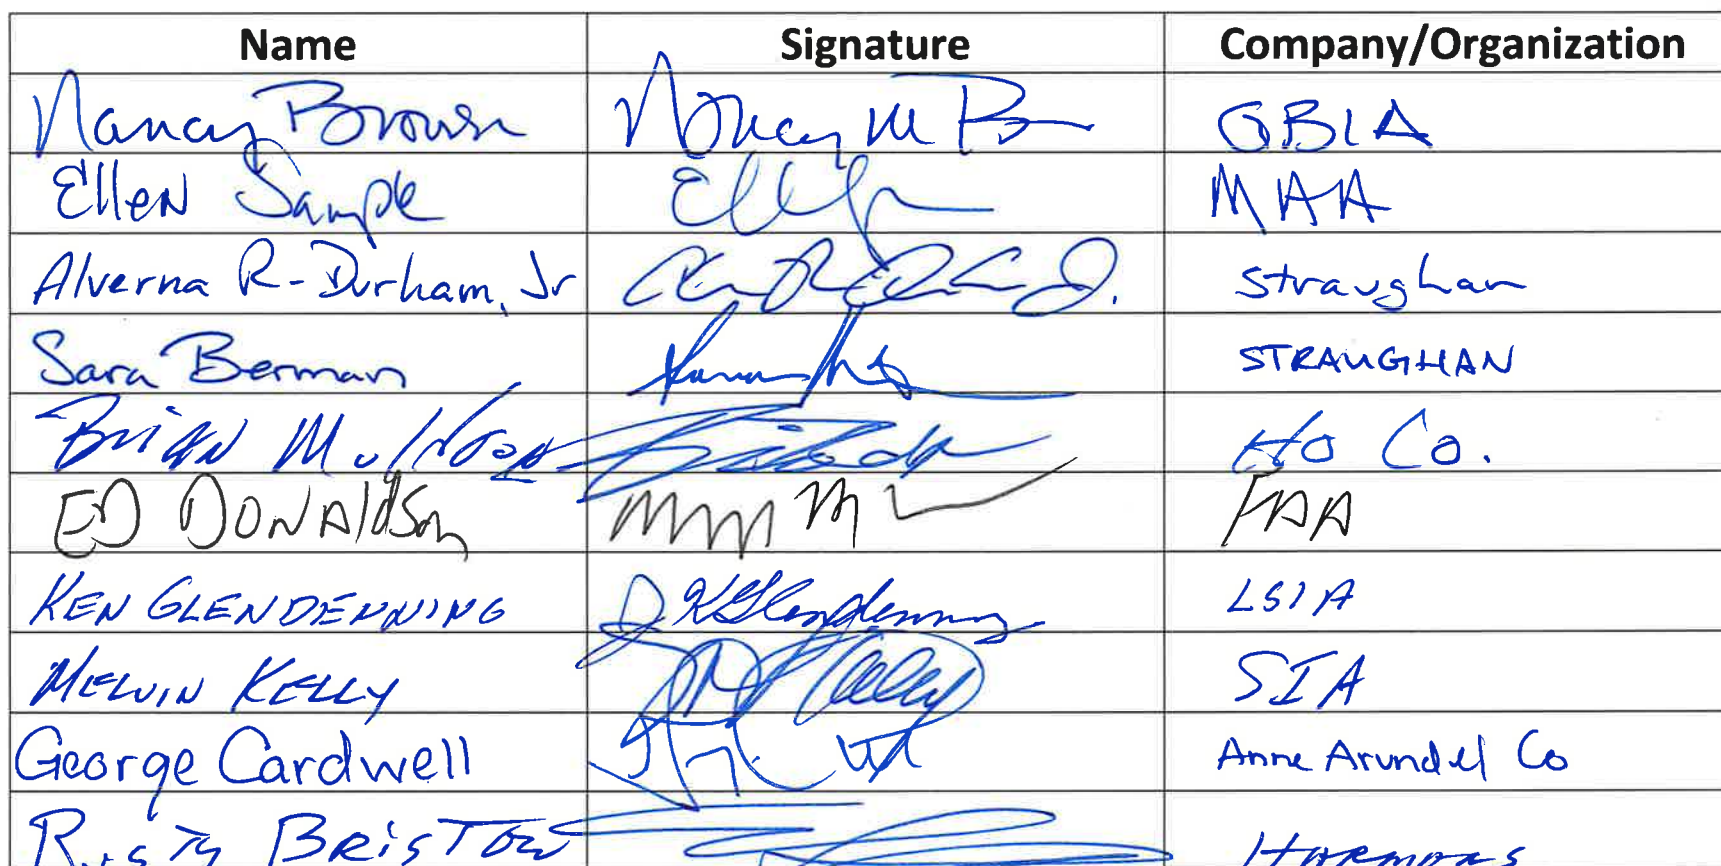 Name Signature Company/Organization
Nancy Brown Nancy M B GBIA
Ellen Sample MAA
Alverna R-Durham, Jr Straughan
Sara Berman STRAUGHAN
Brian Ho Co.
ED DONAldSon FAA
KEN GLENDENNING J KGlendenning LSIA
MELVIN KELLY Kelly SIA
George Cardwell Anne Arundel Co
Rusty BRisTow HARMANS